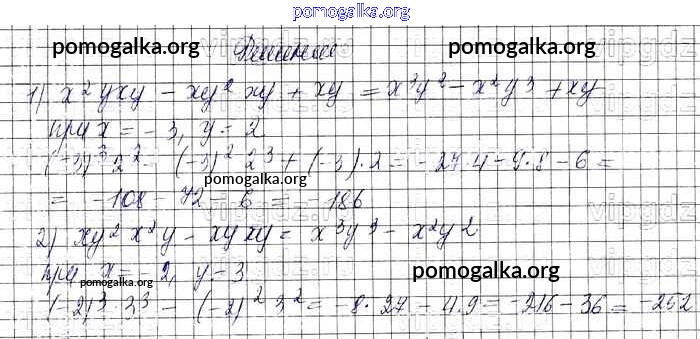 pomogalka.org
pomogalka.org pomogalka.org
Решение
1) x²yxy - xy²xy + xy = x³y² - x²y³ + xy
при x = -3, y = 2
(-3)³·2² - (-3)²·2³ + (-3)·2 = -27·4 - 9·8 - 6 =
pomogalka.org
= -108 - 72 - 6 = -186
2) xy²x²y - xyxy = x³y³ - x²y²
при x = -2, y = 3
pomogalka.org pomogalka.org
(-2)³·3³ - (-2)²·3² = -8·27 - 4·9 = -216 - 36 = -252
vipgdz